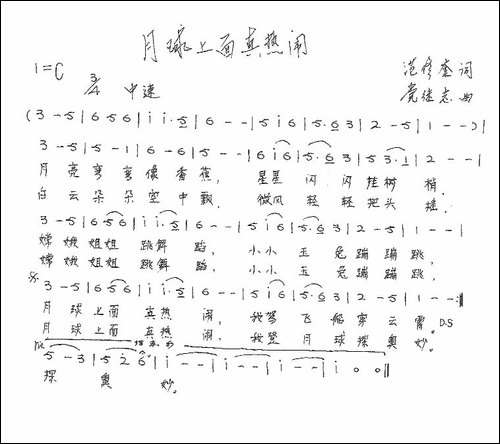 月球上面真热闹
1=C 3/4 中速
范修奎 词
党继志 曲
( 3 - 5 | 6 5 6 | i i. 5 | 6 - - | 5 i 6 | 5. 6 3 | 2 - 5 | 1 - - ) |
3 - 5 | 5 - 1 | 6 - 6 | 5 - - | 6 i 6 | 5. 6 3 | 5 3. 1 | 2 - - |
月 亮 弯 弯 像 香 蕉, 星星 闪 闪 挂 树 梢,
白 云 朵 朵 空 中 飘, 微风 轻 轻 把 头 摇,
3 - 5 | 6 5 6 | i i. 5 | 6 - - | 5 i 6 | 5. 6 3 | 2 - 5 | 1 - - |
嫦 娥 姐姐 跳舞 蹈, 小小 玉 兔 蹦 蹦 跳,
嫦 娥 姐姐 跳舞 蹈, 小小 玉 兔 蹦 蹦 跳,
3 - 5 | 6 5 6 | i i. 5 | 6 - - | 5 i 6 | 5. 6 3 | 2 - 5 | 1 - - :||
月 球 上面 真热 闹, 我驾 飞 船 穿 云 霄。 D.S
月 球 上面 真热 闹, 我登 月 球 探 奥 妙。
5 - 3 | 5 2 6 | i - - | i - - | i - - | i o o ||
探 奥 妙。